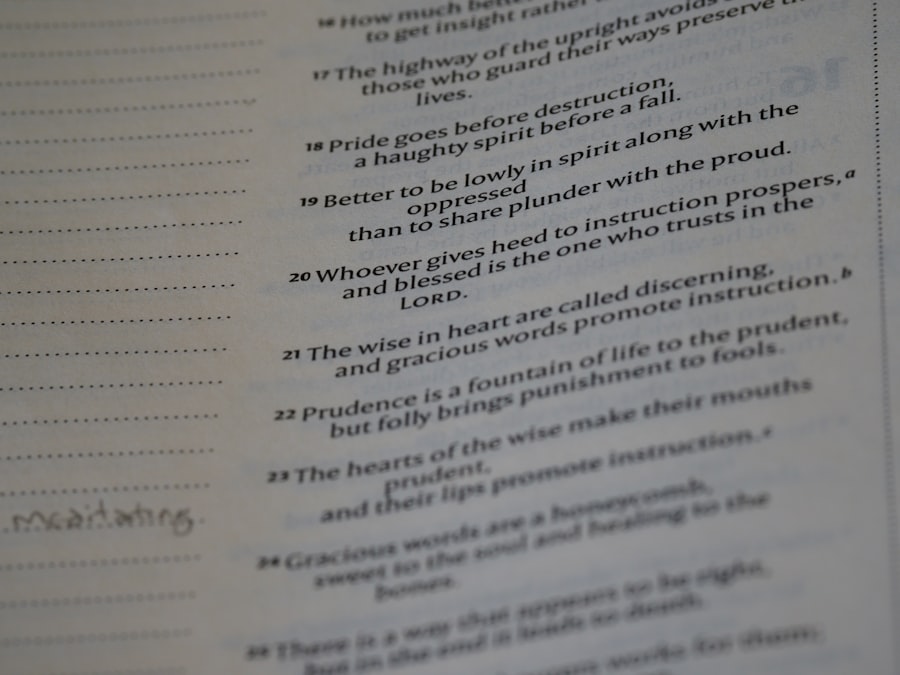 16 How much
to get insight rather
17 The highway of the upright avoids
those who guard their ways preserve
lives.
18 Pride goes before destruction,
a haughty spirit before a fall.
19 Better to be lowly in spirit along with the
oppressed
than to share plunder with the proud.
20 Whoever gives heed to instruction prospers, a
and blessed is the one who trusts in the
LORD.
21 The wise in heart are called discerning,
and gracious words promote instruction. b
22 Prudence is a fountain of life to the prudent,
but folly brings punishment to fools.
23 The hearts of the wise make their mouths
prudent,
and their lips promote instruction. c
24 Gracious words are a honeycomb,
sweet to the soul and healing to the
bones.
25 There is a way that appears to be right,
but in the end it leads to death.
works for them;